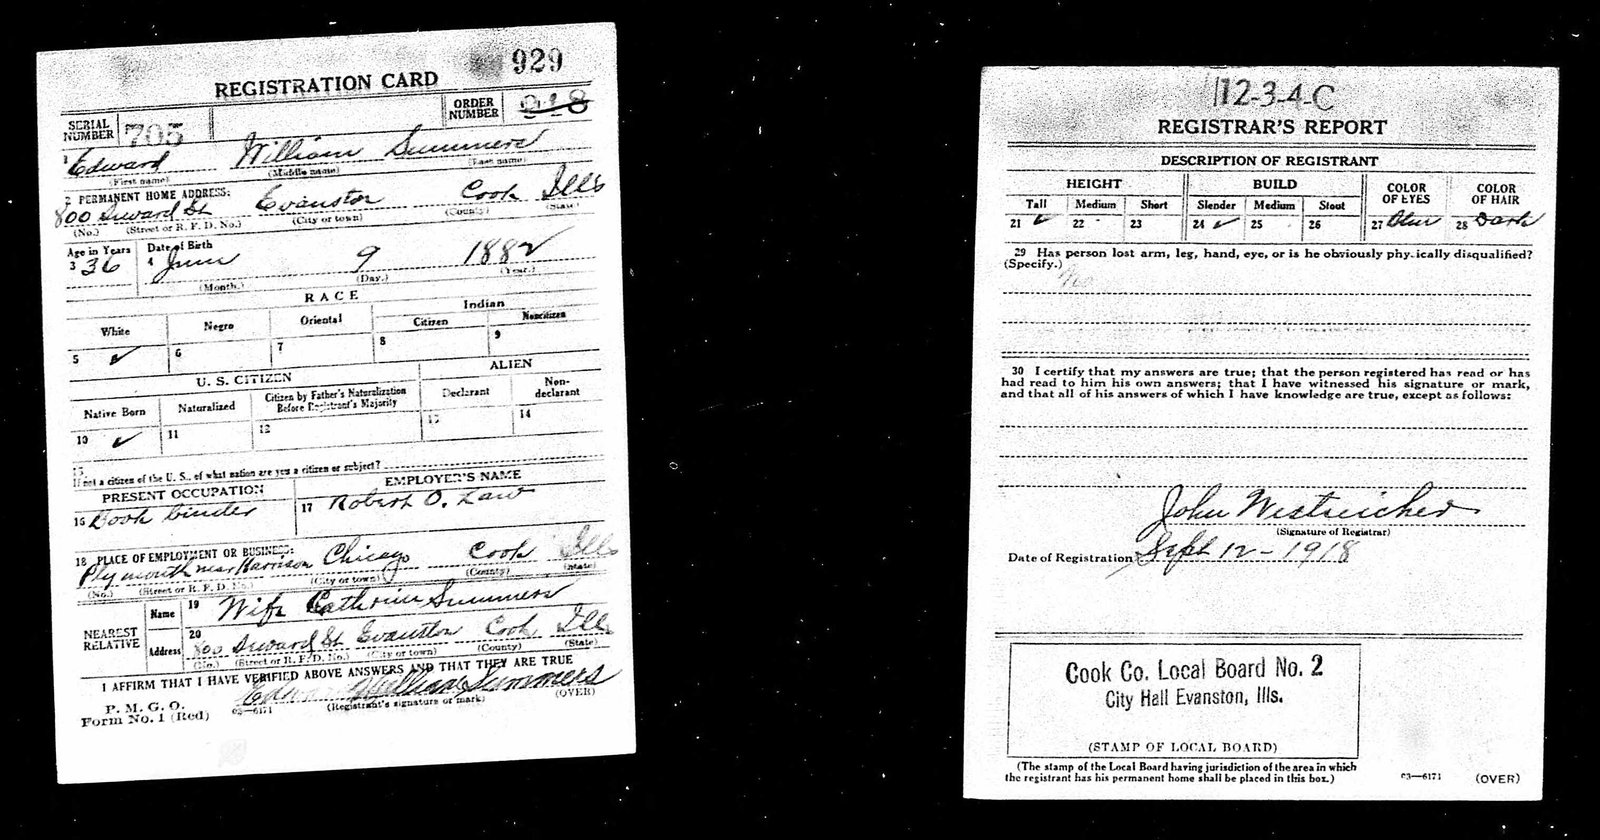 929
REGISTRATION CARD
SERIAL NUMBER 705 ORDER NUMBER 918
1 Edward William Summers
(First name) (Middle name) (Last name)
2 PERMANENT HOME ADDRESS:
800 Seward St Evanston Cook Ills
(No.) (Street or R. F. D. No.) (City or town) (County) (State)
Age in Years Date of Birth
3 36 4 June 9 1882
(Month.) (Day.) (Year.)
RACE
White Negro Oriental Indian
Citizen Noncitizen
5 ✓ 6 7 8 9
U. S. CITIZEN ALIEN
Native Born Naturalized Citizen by Father's Naturalization Before Registrant's Majority Declarant Non-declarant
10 ✓ 11 12 13 14
15
If not a citizen of the U. S., of what nation are you a citizen or subject?
PRESENT OCCUPATION EMPLOYER'S NAME
16 Book binder 17 Robert O. Law
18 PLACE OF EMPLOYMENT OR BUSINESS:
Plymouth near Harrison Chicago Cook Ills
(No.) (Street or R. F. D. No.) (City or town) (County) (State)
NEAREST RELATIVE Name 19 Wife Catherine Summers
Address 20 800 Seward St Evanston Cook Ills
(No.) (Street or R. F. D. No.) (City or town) (County) (State)
I AFFIRM THAT I HAVE VERIFIED ABOVE ANSWERS AND THAT THEY ARE TRUE
Edward William Summers
P. M. G. O.
Form No. 1 (Red) 03—6171 (Registrant's signature or mark) (OVER)
12-3-4-C
REGISTRAR'S REPORT
DESCRIPTION OF REGISTRANT
HEIGHT BUILD COLOR OF EYES COLOR OF HAIR
Tall Medium Short Slender Medium Stout
21 ✓ 22 23 24 ✓ 25 26 27 Blue 28 Dark
29 Has person lost arm, leg, hand, eye, or is he obviously physically disqualified?
(Specify.) No
30 I certify that my answers are true; that the person registered has read or has
had read to him his own answers; that I have witnessed his signature or mark,
and that all of his answers of which I have knowledge are true, except as follows:
John Westreicher
(Signature of Registrar)
Date of Registration Sept 12 - 1918
Cook Co. Local Board No. 2
City Hall Evanston, Ills.
(STAMP OF LOCAL BOARD)
(The stamp of the Local Board having jurisdiction of the area in which
the registrant has his permanent home shall be placed in this box.)
03—6171 (OVER)